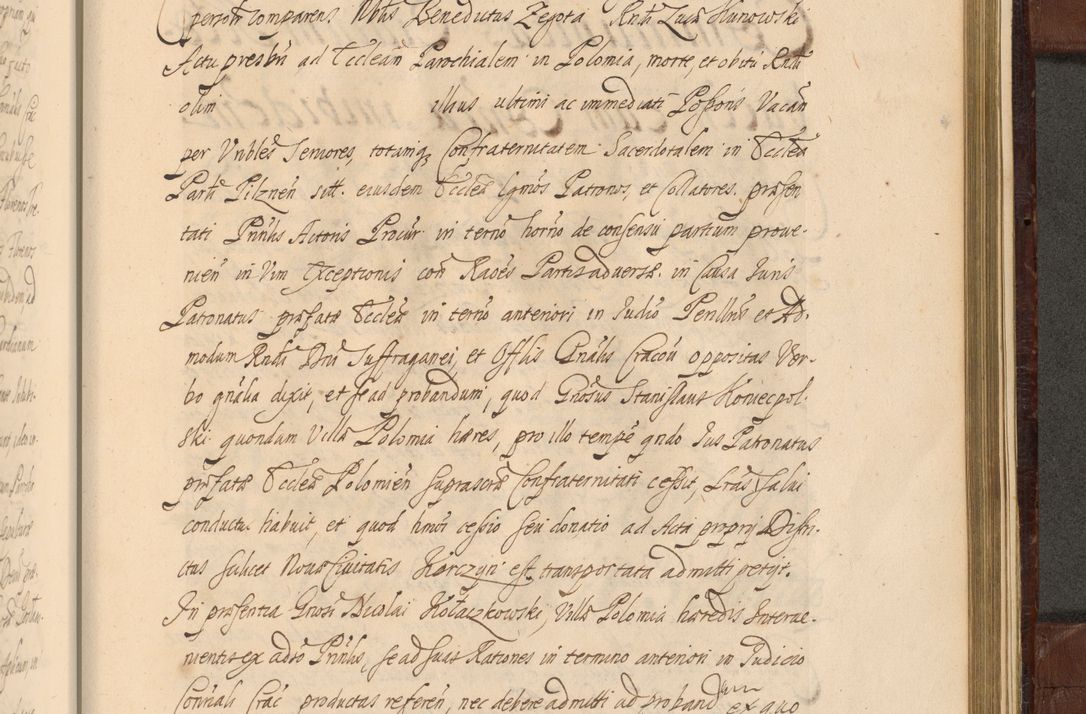 person comparens Nblis Benedictus Zegota Rndi Luca Hunowski
Actu presbri ad Eccleãm Parochialem in Polomia, morte, et obitu Rndi
olim illius ultimi ac immediati Possoris Vacan
per Vnbles Seniores, totamq Confraternitatem Sacerdotalem in Ecclea
Parli Pilznen sitt eiusdem Ecclea lgmos Patronos, et Collatores præsen
tati Pnnlis Actoris Procur in termo horno de consensu partium prove-
nien in Vim Exceptionis con Raoes Partis adversæ in Causa Iuris
Patronatus præfatæ Ecclea in termo anteriori in Iudio Penllris et Ad-
modum Rndi Dni Suffraganei, et Offlis Gnalis Cracou oppositas Ver-
bo gnalia dixit, et se ad probandum, quod Gnosus Stanislaus Koniecpol-
ski quondam Villæ Polomia hæres, pro illo tempe qndo Ius Patronatus
præfatæ Ecclea Polomien suprascræ Confraternitati cessit, Lras Salui
conductus habuit, et quod hmoi cessio seu donatio ad Acta proprij Distri-
ctus scilicet Nouæ Ciuitatis Korczyn est transportata admitti petyt.
In præsentia Gnosi Nicolai Kołaczkowski, Villæ Polomia hæredis Interue-
nientis ex adto Pnnlis, se ad suas Rationes in termino anteriori in Iudicio
Connali Crac productas referen, nec debere admitti ad proband
ex quo